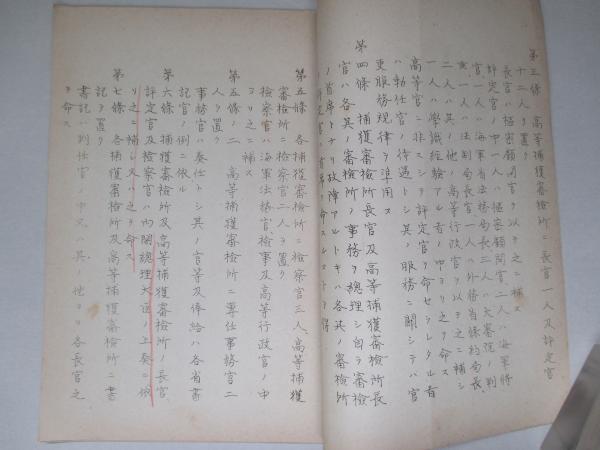 第三條　高等捕獲審檢所ニ長官一人及評定官
十二人ヲ置ク
長官ハ樞密顧問官ヲ以テ之ニ補ス
評定官ノ中一人ハ樞密顧問官、二人ハ海軍將
官、一人ハ海軍省法務局長、三人ハ大審院ノ判
事、一人ハ法制局長官、一人ハ外務省條約局長、
二人ハ其ノ他ノ高等行政官ヲ以テ之ニ補シ
一人ハ學識經驗アル者ノ中ヨリ之ヲ命ス
高等官ニ非スシテ評定官ヲ命セラレタル者
ハ勅任官ノ待遇トシ其ノ服務ニ關シテハ官
吏服務規律ヲ準用ス
第四條　捕獲審檢所長官及高等捕獲審檢所長
官ハ各其ノ審檢所ノ事務ヲ總理シ自ラ審檢
ノ首席トナリ故障アルトキハ各其ノ審檢所
ヲ命スルコトヲ得
第五條　各捕獲審檢所ニ檢察官三人、高等捕獲
審檢所ニ檢察官二人ヲ置ク
檢察官ハ海軍法務官、檢事及高等行政官ノ中
ヨリ之ニ補ス
第五條ノ二　高等捕獲審檢所ニ專任事務官二
人ヲ置ク
事務官ハ奏任トシ其ノ官等及俸給ハ各省書
記官ノ例ニ依ル
第六條　捕獲審檢所及高等捕獲審檢所ノ長官、
評定官及檢察官ハ內閣總理大臣ノ上奏ニ依
リ之ニ補シ又ハ之ヲ命ス
第七條　各捕獲審檢所及高等捕獲審檢所ニ書
記ヲ置ク
書記ハ判任官ノ中又ハ其ノ他ヨリ各長官之
ヲ命ス